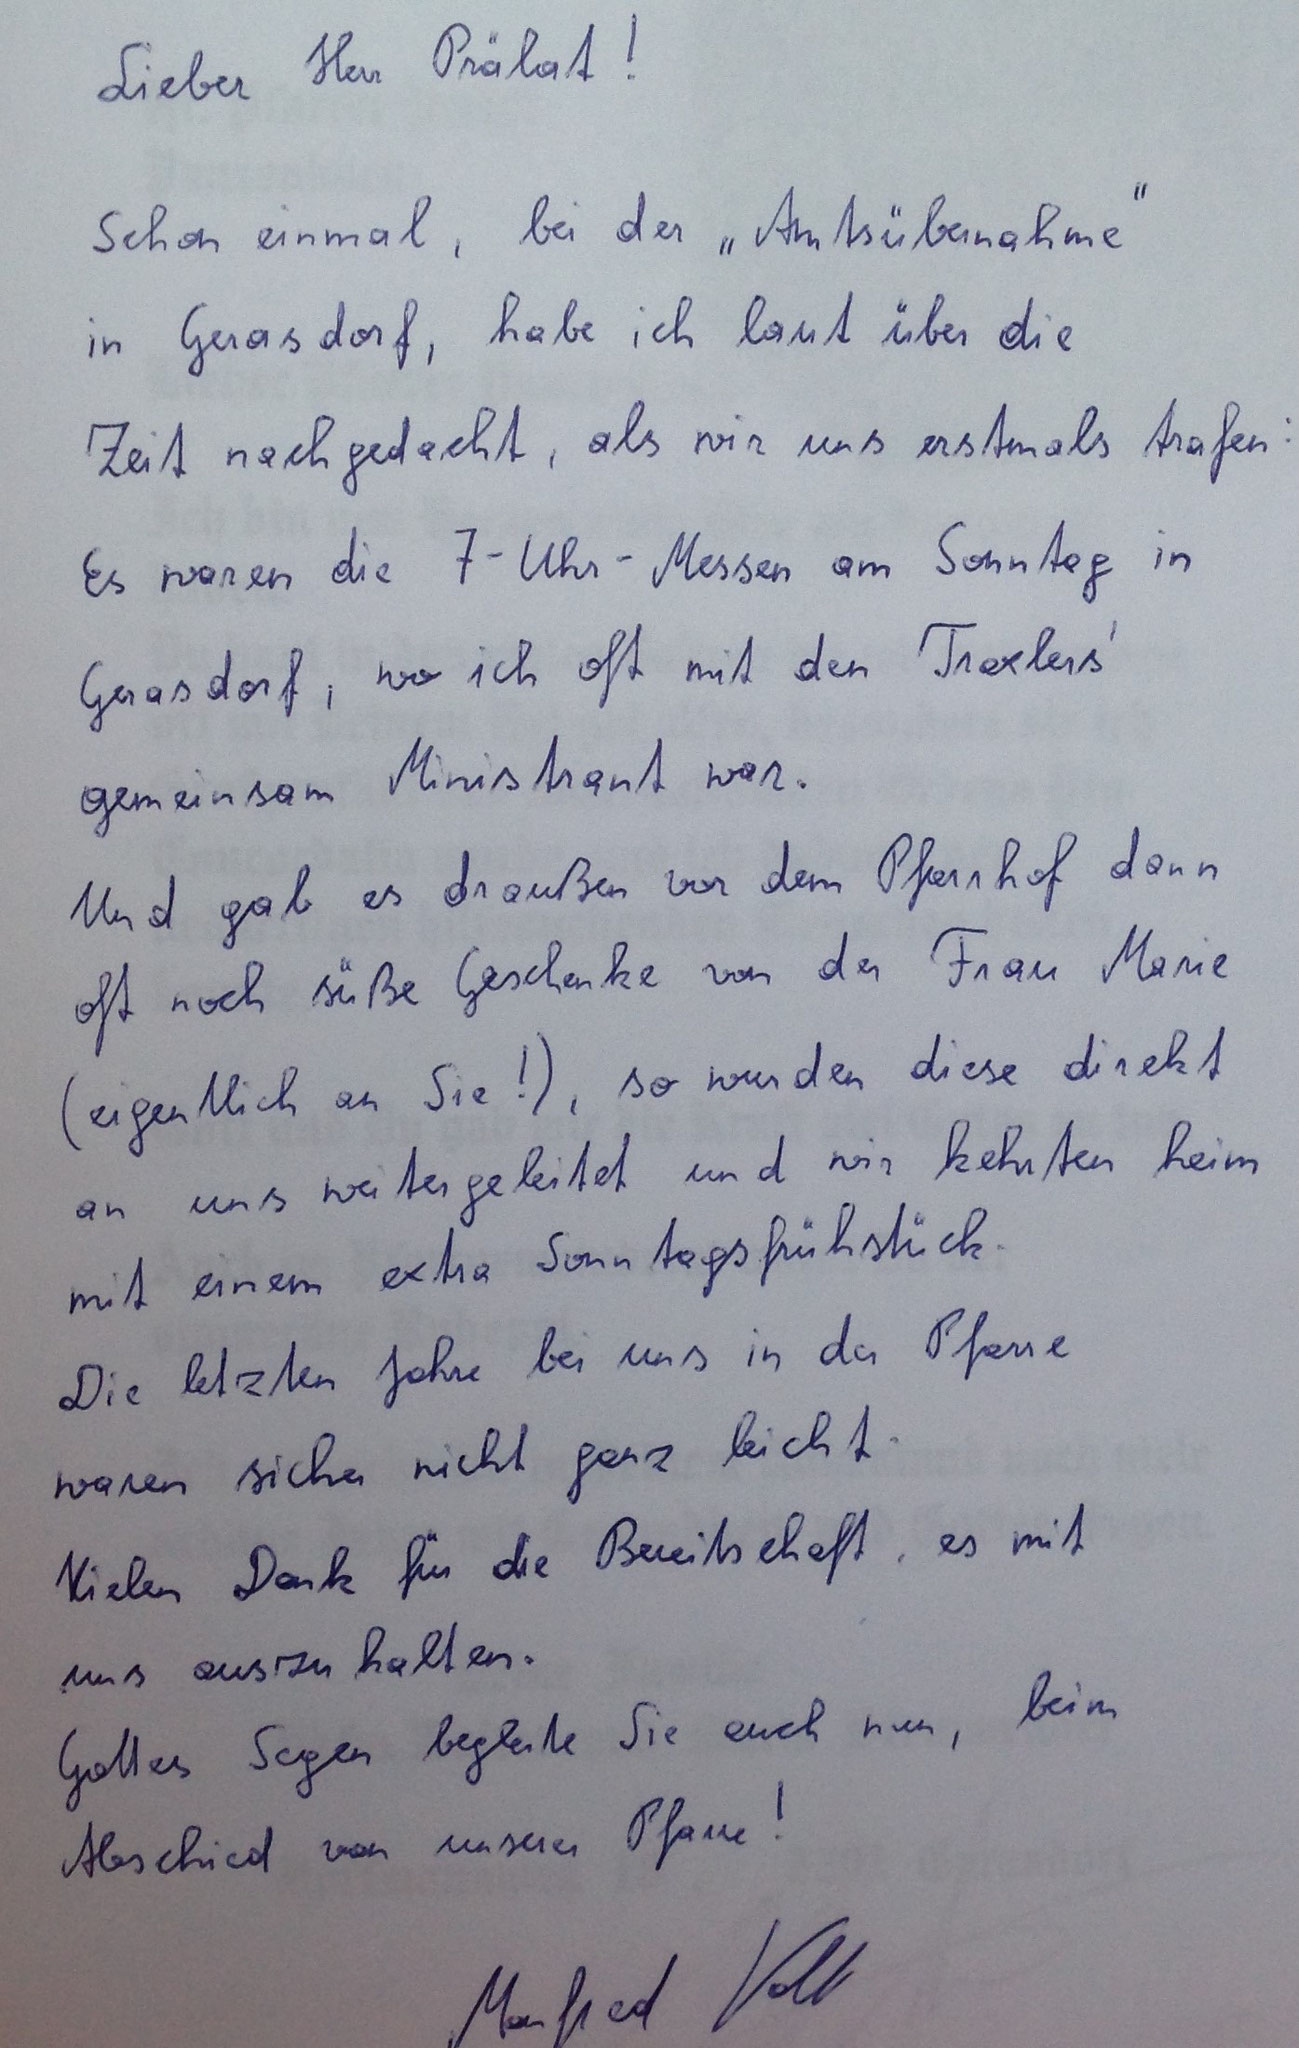 Lieber Herr Prälat!
Schon einmal, bei der „Amtsübernahme"
in Gerasdorf, habe ich laut über die
Zeit nachgedacht, als wir uns erstmals trafen:
Es waren die 7-Uhr-Messen am Sonntag in
Gerasdorf, wo ich oft mit den Traxlers'
gemeinsam Ministrant war.
Und gab es draußen vor dem Pfarrhof dann
oft noch süße Geschenke von der Frau Marie
(eigentlich an Sie!), so wurden diese direkt
an uns weitergeleitet und wir kehrten heim
mit einem extra Sonntagsfrühstück.
Die letzten Jahre bei uns in der Pfarre
waren sicher nicht ganz leicht.
Vielen Dank für die Bereitschaft, es mit
uns auszuhalten.
Gottes Segen begleite Sie auch nun, beim
Abschied von unserer Pfarre!
Manfred